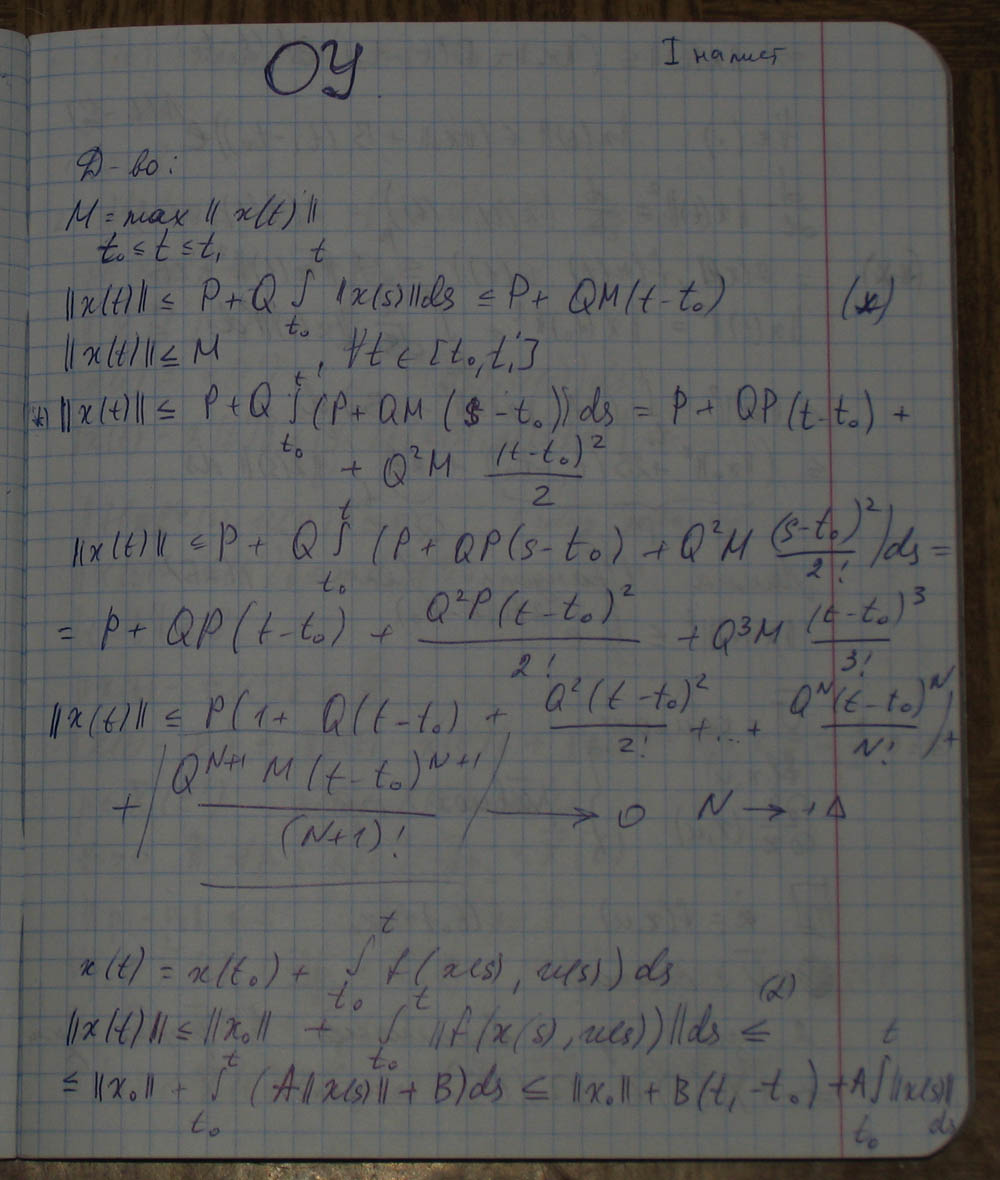 ОУ
I
Д-во:
M = max ‖x(t)‖
t₀ ≤ t ≤ t₁
‖x(t)‖ ≤ P + Q ∫_{t₀}^{t} ‖x(s)‖ds ≤ P + QM(t-t₀) (*)
‖x(t)‖ ≤ M , ∀t ∈ [t₀, t₁]
*) ‖x(t)‖ ≤ P + Q ∫_{t₀}^{t} (P + QM (s-t₀))ds = P + QP(t-t₀) +
+ Q²M (t-t₀)²/2
‖x(t)‖ ≤ P + Q ∫_{t₀}^{t} (P + QP(s-t₀) + Q²M (s-t₀)²/2!)ds =
= P + QP(t-t₀) + Q²P(t-t₀)²/2! + Q³M (t-t₀)³/3!
‖x(t)‖ ≤ P(1 + Q(t-t₀) + Q²(t-t₀)²/2! + ... + Q^N(t-t₀)^N/N!) +
+ (Q^{N+1} M (t-t₀)^{N+1}/(N+1)!) → 0 N → +∞
x(t) = x(t₀) + ∫_{t₀}^{t} f(x(s), u(s))ds
‖x(t)‖ ≤ ‖x₀‖ + ∫_{t₀}^{t} ‖f(x(s), u(s))‖ds ≤ (2)
≤ ‖x₀‖ + ∫_{t₀}^{t} (A‖x(s)‖ + B)ds ≤ ‖x₀‖ + B(t₁-t₀) + A∫_{t₀}^{t} ‖x(s)‖ds